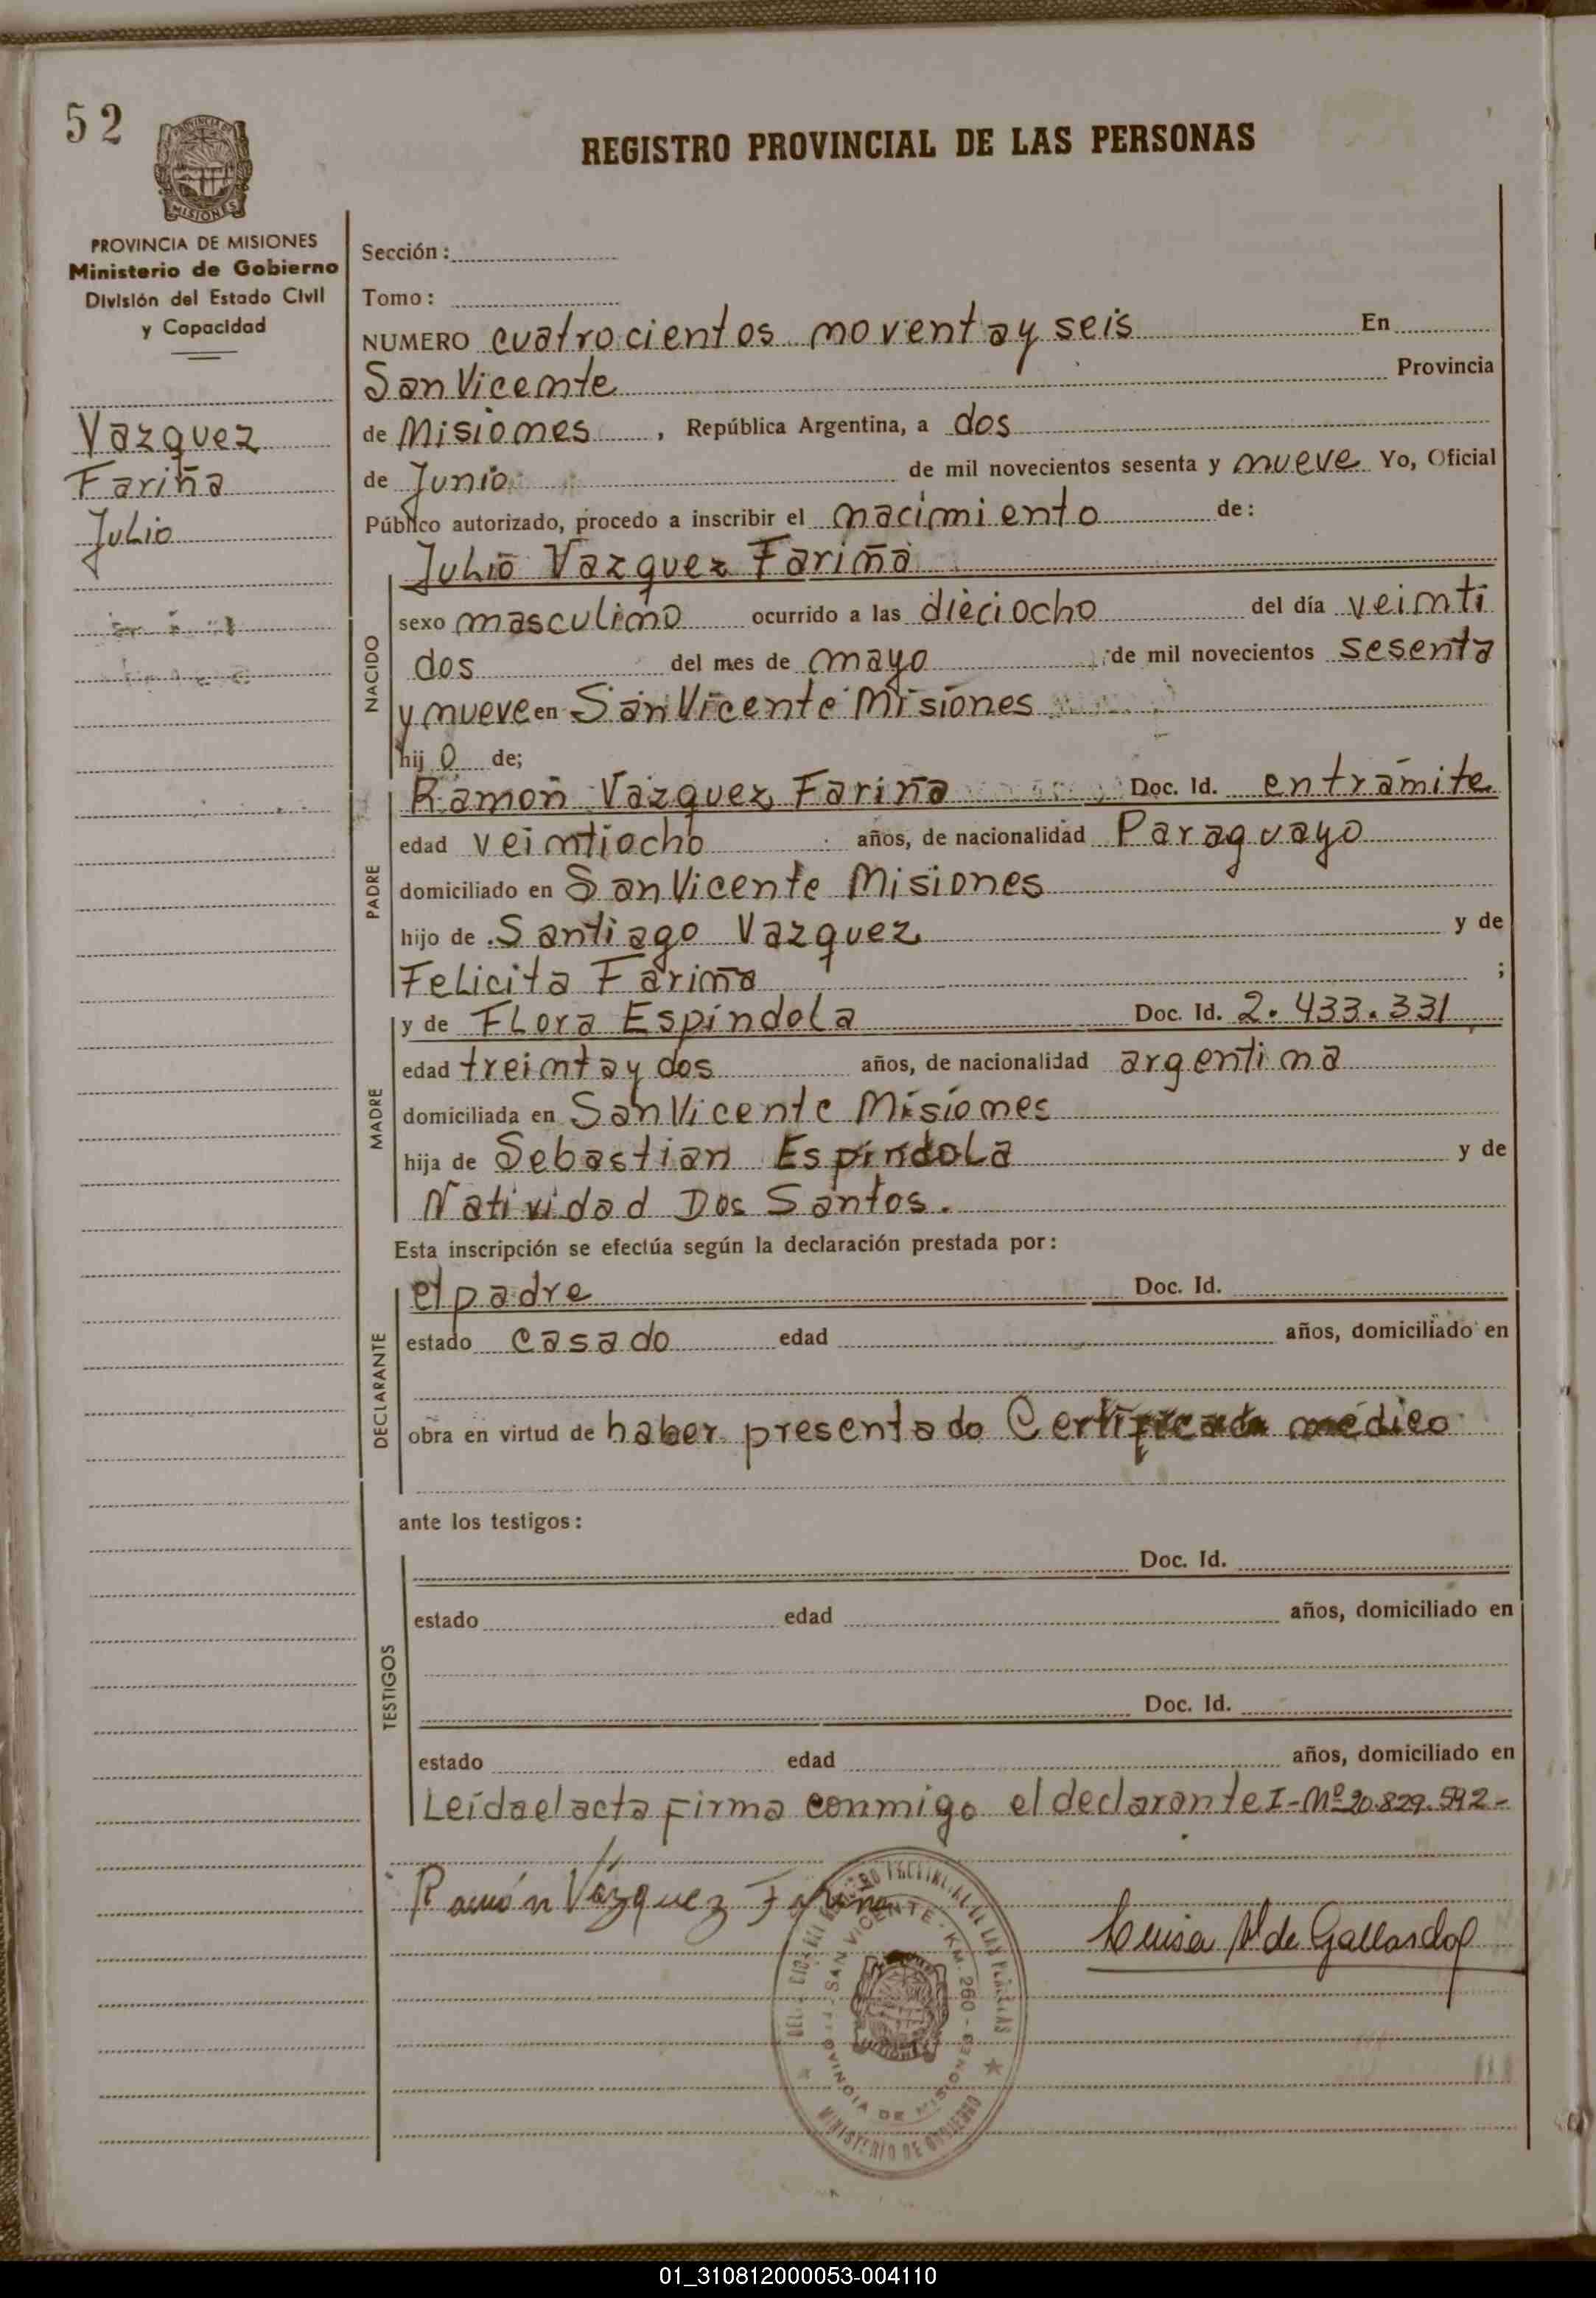 52
REGISTRO PROVINCIAL DE LAS PERSONAS
PROVINCIA DE MISIONES
Ministerio de Gobierno
División del Estado Civil
y Capacidad
Vazquez
Fariña
Julio
Sección:
Tomo:
NUMERO cuatrocientos noventa y seis En
San Vicente Provincia
de Misiones, República Argentina, a dos
de Junio de mil novecientos sesenta y nueve Yo, Oficial
Público autorizado, procedo a inscribir el nacimiento de:
NACIDO
Julio Vazquez Fariña
sexo masculino ocurrido a las dieciocho del día veinti
dos del mes de mayo de mil novecientos sesenta
y nueve en San Vicente Misiones
hijo de;
PADRE
Ramón Vazquez Fariña Doc. Id. en trámite
edad veintiocho años, de nacionalidad Paraguayo
domiciliado en San Vicente Misiones
hijo de Santiago Vazquez y de
Felicita Fariña ;
MADRE
y de Flora Espíndola Doc. Id. 2.433.331
edad treinta y dos años, de nacionalidad argentina
domiciliada en San Vicente Misiones
hija de Sebastian Espíndola y de
Natividad Dos Santos.
Esta inscripción se efectúa según la declaración prestada por:
DECLARANTE
el padre Doc. Id.
estado casado edad años, domiciliado en
obra en virtud de haber presentado Certificado médico
ante los testigos:
TESTIGOS
Doc. Id.
estado edad años, domiciliado en
Doc. Id.
estado edad años, domiciliado en
Leída el acta firma conmigo el declarante I-Nº 20.829.592-
Ramón Vázquez Fariña
Luisa V. de Gallardo
SAN VICENTE - KM. 260 -
PROVINCIA DE MISIONES
MINISTERIO DE GOBIERNO
01_310812000053-004110